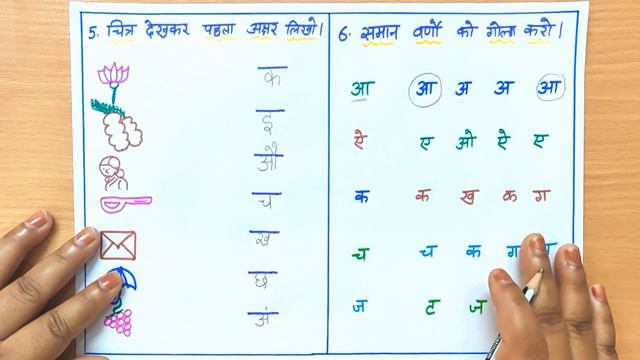 5. चित्र देखकर पहला अक्षर लिखो।
क
इ
औ
च
ख
छ
अं
6. समान वर्णो को गोला करो।
आ आ अ अ आ
ऐ ए ओ ऐ ए
क क ख क ग
च च क ग
ज ट ज